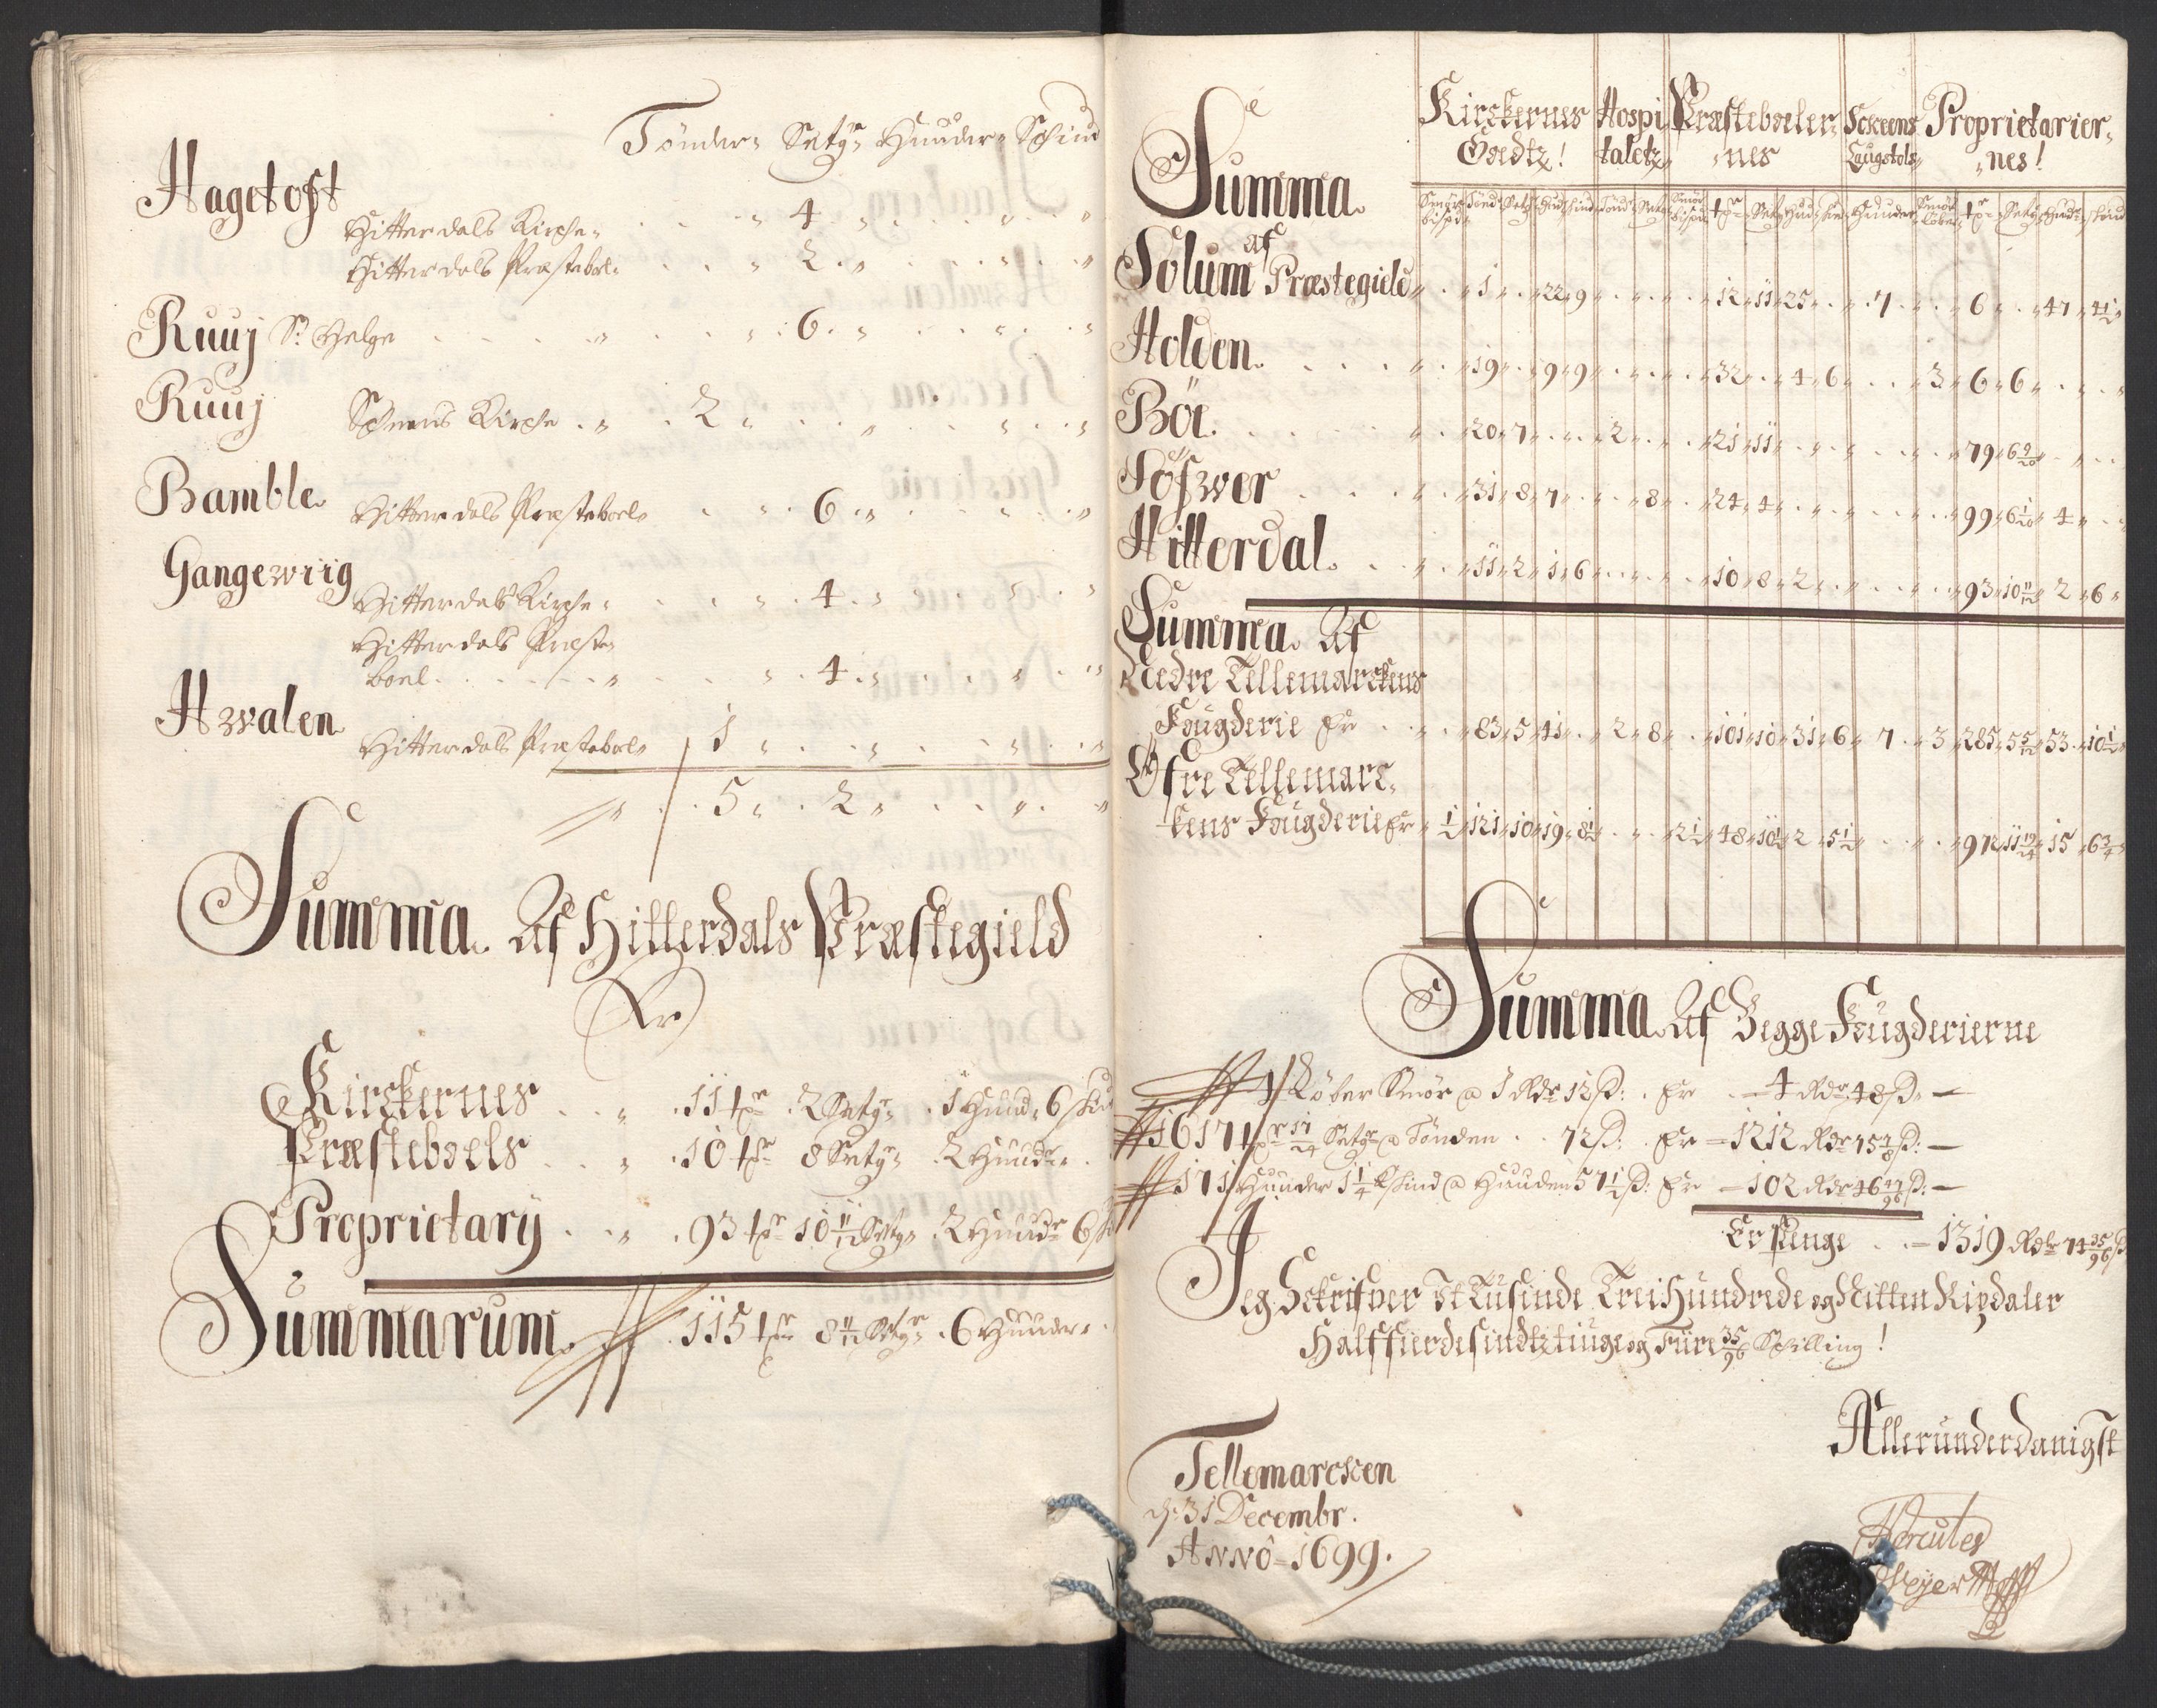 Tønder, Setg, Huuder, Schind
Hagetoft
Hitterdals Kirche, 4
Hitterdals Præsteboel, 2
Ruuj St. Helge 6
Ruuj Scheens Kirche 2
Bamble Hitterdals Præsteboel 6
Gangewiig Hitterdals Kirche, 4
Hitterdals Præste,
boel 4
Hwalen
Hitterdals Præsteboel 1
5 2
Summa Af Hitterdals Præstegield
Er
Kirckernes 11 tr 2 Setg, 1 Huud, 6
Præsteboels 10 tr 8 Setg, 2 Huuder
Proprietarij 93 tr 10 11/12 Setg, 2 Huudr 6
Summarum 115 tr 8 11/12 Setgr 6 Huuder
Kirckernes Hospi Præsteboeler, Scheens Proprietarier,
Goedtz! taletz nes Laugstols nes!
Summa
af
Solum Præstegield 1 22 9 12 11 25 7 6 47 4 1/2
Holden 19 9 9 32 4 6 3 6 6
Böe 20 7 2 21 11 79 6 9/20
Söfwer 31 8 7 8 24 4 99 6 1/20 4
Hitterdal 11 2 1 6 10 8 2 93 10 11/12 2 6
Summa Af
Nedre Tellemarckens
Fougderie Er 83 5 41 2 8 101 10 31 6 7 3 285 5 5/12 53 10 1/2
Øfre Tellemarc,
kens Fougderie Er 1/2 121 10 19 8 1/2 2 1/2 48 10 1/2 2 5 1/2 972 11 19/24 15 6 3/4
Summa Af Begge Fougderierne
4 Løber Smör a 1 Rdr 12 ß: Er 4 Rdr 48 ß
1617 tr 17/24 Setgr a Tönden 72 ß: Er 1212 Rdr 75 ß:
171 Huuder 1 1/4 Skind a Huuden 57 1/2 ß: Er 102 Rdr 46 47/96 ß:
Er Penge 1319 Rdlr 74 35/96 ß
Jeg Sckrifver Et Tusinde Trei Hundrede og Nitten Rixdaler
Halffierdesindtztiuge og Fiire 35/96 Schilling!
Allerunderdanigst
Tellemarcken
d. 31 Decembr.
Anno 1699.
Hercules
Weyer